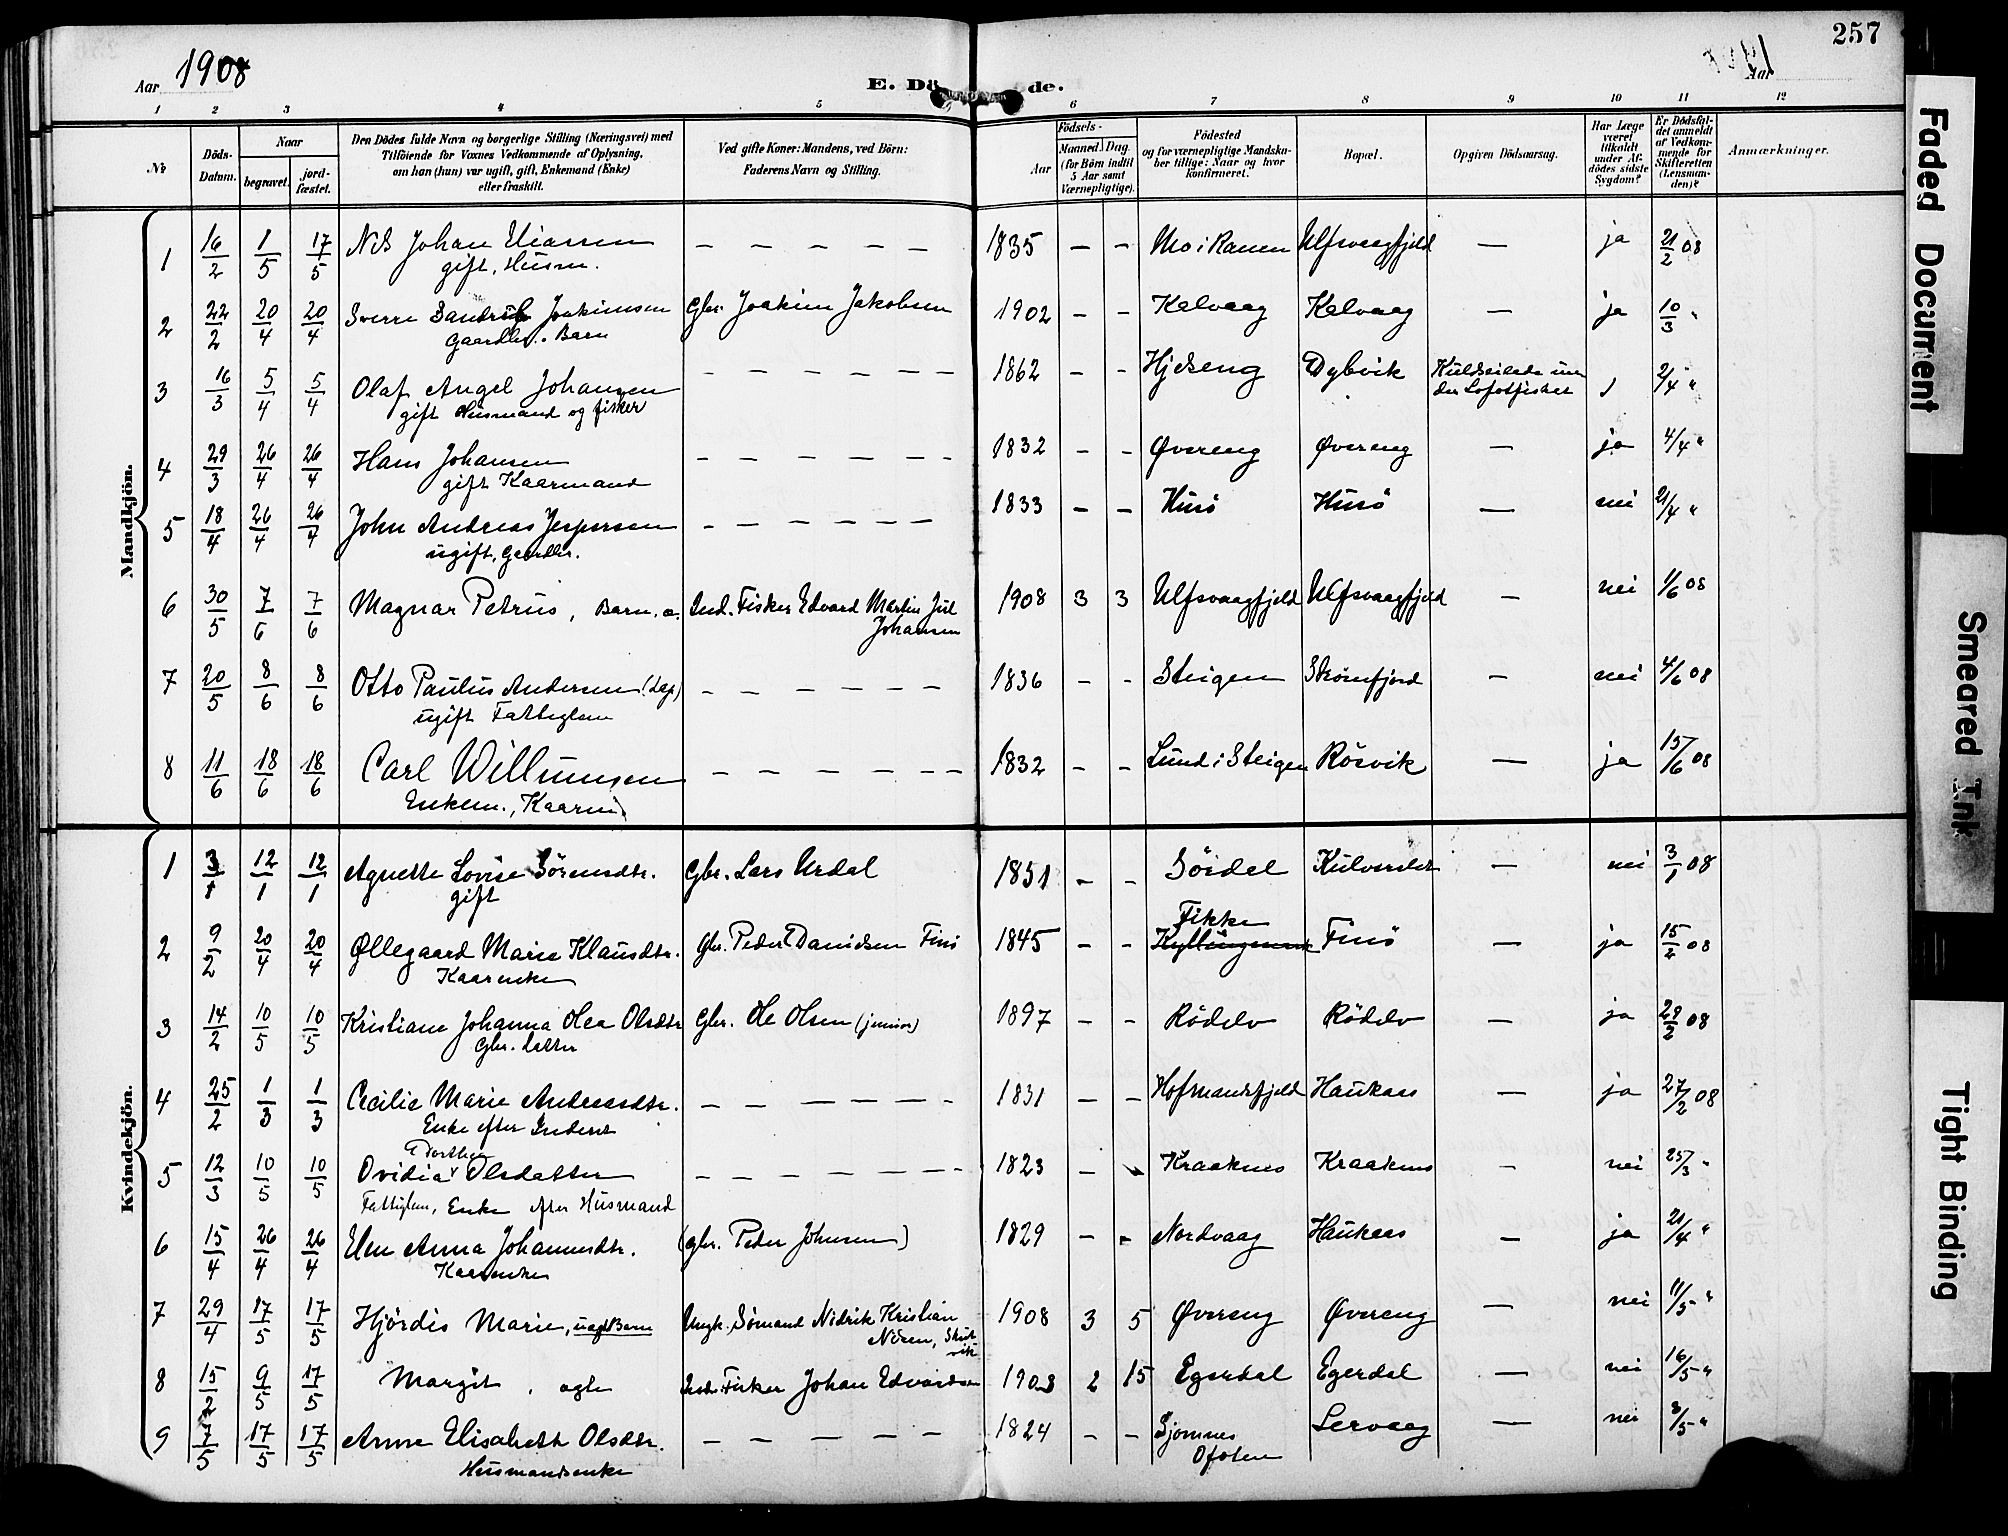 257
Aar 1908
E. Dö de.
Aar
1 2 3 4 5 6 7 8 9 10 11 12
Nr
Döds-Datum.
Naar
begravet.
jord-fæstet.
Den Dödes fulde Navn og borgerlige Stilling (Næringsvei) med
Tilföiende for Voxnes Vedkommende af Oplysning,
om han (hun) var ugift, gift, Enkemand (Enke)
eller fraskilt.
Ved gifte Koner: Mandens, ved Börn:
Faderens Navn og Stilling.
Födsels-
Aar
Maaned. Dag.
(for Börn indtil
5 Aar samt
Værnepligtige).
Födested
og for værnepligtige Mandska-
ber tillige: Naar og hvor
konfirmeret.
Bopæl.
Opgiven Dödsaarsag.
Har Læge
været
tilkaldt
under Af-
dödes sidste
Sygdom?
Er Dödsfal-
det anmeldt
af Vedkom-
mende for
Skifteretten
(Lensman-
den)?
Anmærkninger.
Mandkjön.
1 16/2 1/5 17/5 Nils Johan Eliassen — — — — — — 1835 — — Mo i Ranen Ulfsvaagfjeld — ja 21/2 08
gift, Husm.
2 22/2 20/4 20/4 Sverre Joakimsen Gbr. Joakim Jakobsen 1902 — — Kalvaag Kalvaag — ja 10/3 "
Gaardbr. Barn
3 16/3 5/4 5/4 Olaf Angel Johansen — — — — — — 1862 — — Hjelseng Dybvik Kuldseilede un 2/4 "
gift Husmand og fisker der Lofotfisket
4 29/3 26/4 26/4 Hans Johansen — — — — — — 1832 — — Øvereng Øvereng — ja 4/4 "
gift Kaarmand
5 18/4 26/4 26/4 John Andreas Jespersen — — — — — — 1833 — — Husö Husö — nei 21/4 "
ugift, Gaardbr.
6 30/5 7/6 7/6 Magnar Petrus, Barn. a. Ind. Fisker Edvard Martin Jul 1908 3 3 Ulfsvaagfjeld Ulfsvaagfjeld — nei 1/6 08
Johansen
7 20/5 8/6 8/6 Otto Paulus Andersen (Lap) — — — — — — 1836 — — Steigen — nei 4/6 08
ugift Fattiglem
8 11/6 18/6 18/6 Carl Willumsen — — — — — — 1832 — — Lund i Steigen Rösvik — ja 15/6 08
Enkem., Kaarm.
Kvindekjön.
1 3/1 12/1 12/1 Agnette Lovise Sörensdtr. Gbr. Lars Urdal 1851 — — Söidal — nei 3/1 08
gift
2 9/2 20/4 20/4 Øllegaard Marie Klausdtr. Gbr. Peder Danielsen Finö 1845 — — Fikke Finö — ja 15/2 08
Kaarenke
3 14/2 10/5 10/5 Kristiane Johanna Olea Olsdtr Gbr. Ole Olsen (junior) 1897 — — Rödelv Rödelv — ja 29/2 08
Gbr. datter
4 25/2 1/3 1/3 Cecilie Marie Andreasdtr. — — — — — — 1831 — — Hofmandsfjeld Haukaas — ja 27/2 08
Enke efter Inderst
Dorthea
5 12/3 10/5 10/5 Ovidia Olsdatter — — — — — — 1823 — — Kraaknes Kraaknes — nei 25/3 "
Fattiglem, Enke efter Husmand
6 15/4 26/4 26/4 Elen Anna Johannesdtr. (gbr. Peder Johnsen) 1829 — — Nordvaag Haukaas — ja 21/4 "
Kaarenke
7 29/4 17/5 17/5 Hjördis Marie, uægt Barn Ungk. Sömand Nidrik Kristian 1908 3 5 Øvereng Øvereng — nei 11/5 "
Nilsen, Skutvik
8 15/2 9/5 17/5 Margit, ægte Ind. Fisker Johan Edvardsen 1903 2 15 Egerdal Egerdal — nei 16/5 "
9 7/5 17/5 17/5 Anne Elisabeth Olsdtr. — — — — — — 1824 — — Sjomnes Lervaag — nei 8/5 "
Husmandsenke Ofoten
Faded Document
Smeared Ink
Tight Binding